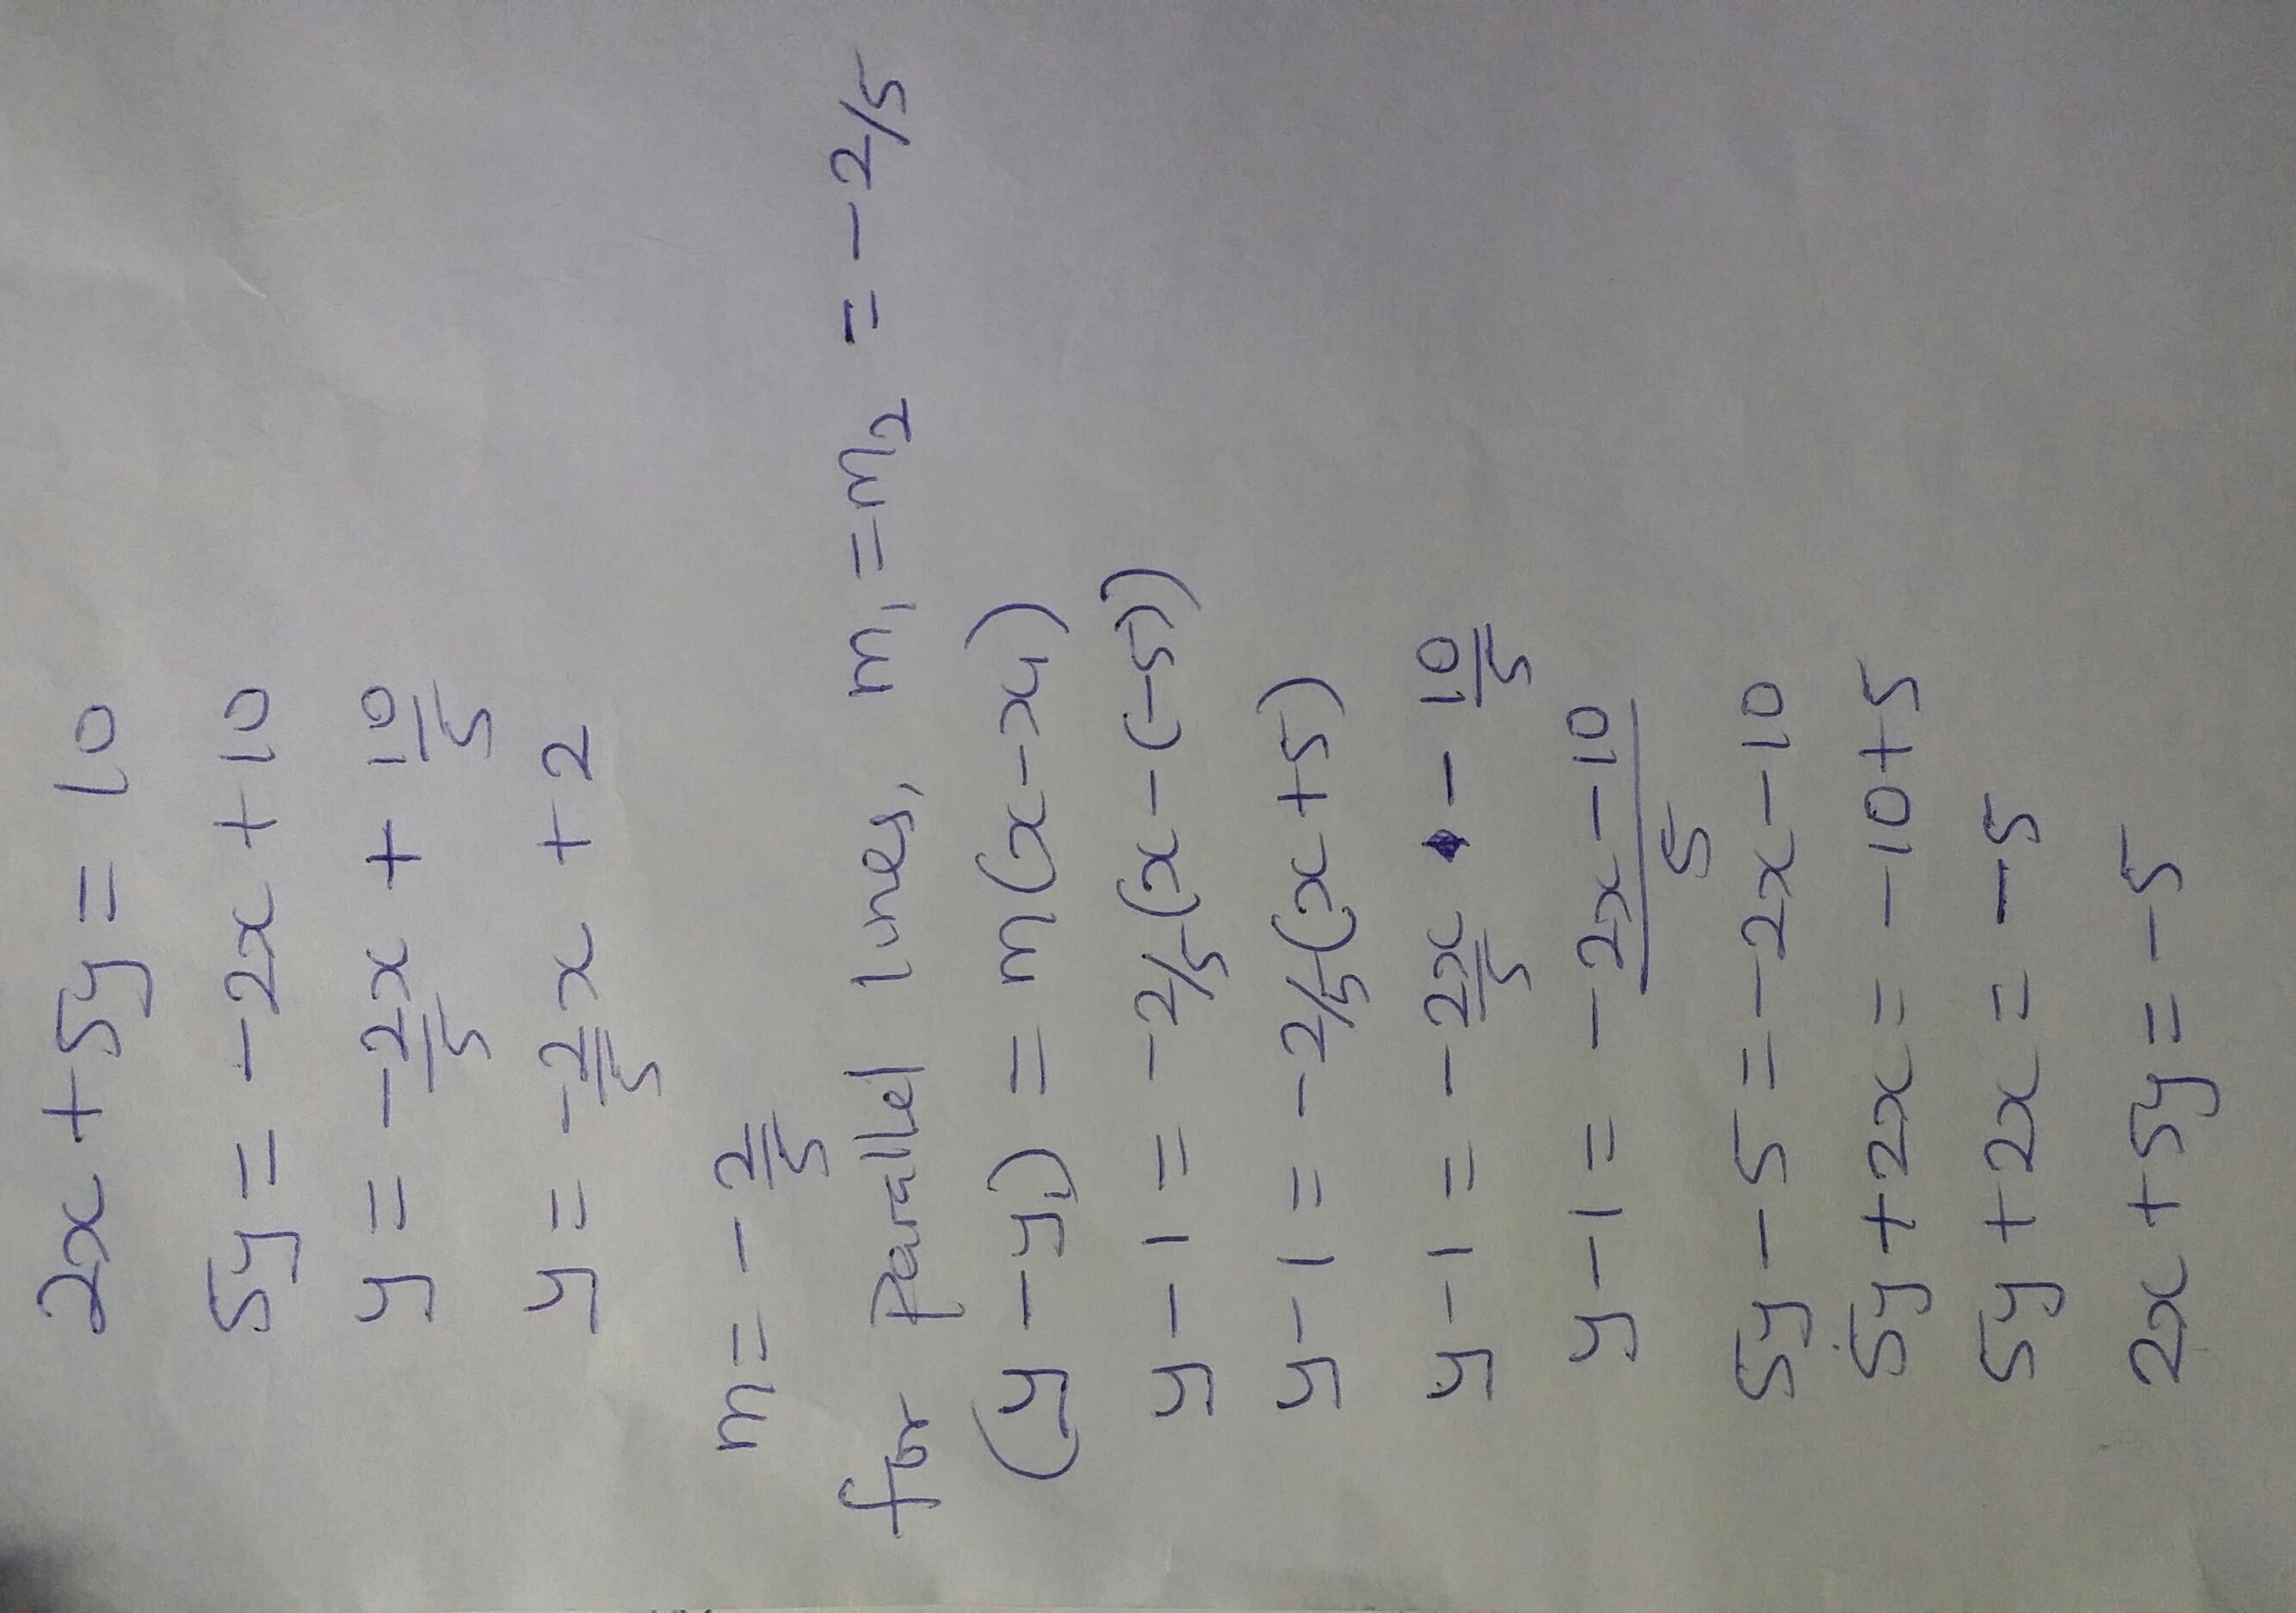 2x + 5y = 10
5y = -2x + 10
y = -2/5 x + 10/5
y = -2/5 x + 2
m = -2/5
for Parallel lines, m₁ = m₂ = -2/5
(y - y₁) = m(x - x₁)
y - 1 = -2/5(x - (-5))
y - 1 = -2/5(x + 5)
y - 1 = -2x/5 - 10/5
y - 1 = -2x - 10/5
5y - 5 = -2x - 10
5y + 2x = -10 + 5
5y + 2x = -5
2x + 5y = -5